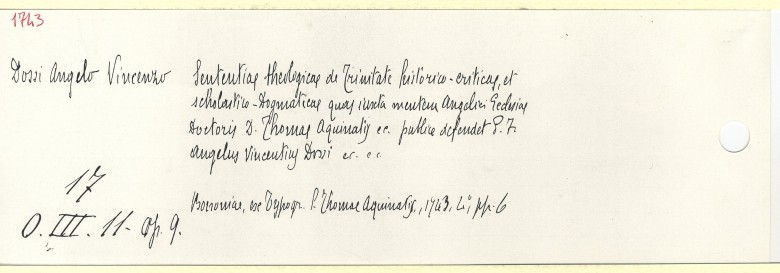 1743
Dossi Angelo Vincenzo
Sententias theologicas de Trinitate historico-criticas, et
scholastico-dogmaticas quas iuxta mentem Angelici Ecclesiae
Doctoris D. Thomae Aquinatis ec. publice defendet P. F.
Angelus Vincentius Dossi ec. ec.
Bononiae, ex Typogr. S. Thomae Aquinatis, 1743, 4°, pp. 6
17
O. III. 11. Op. 9.